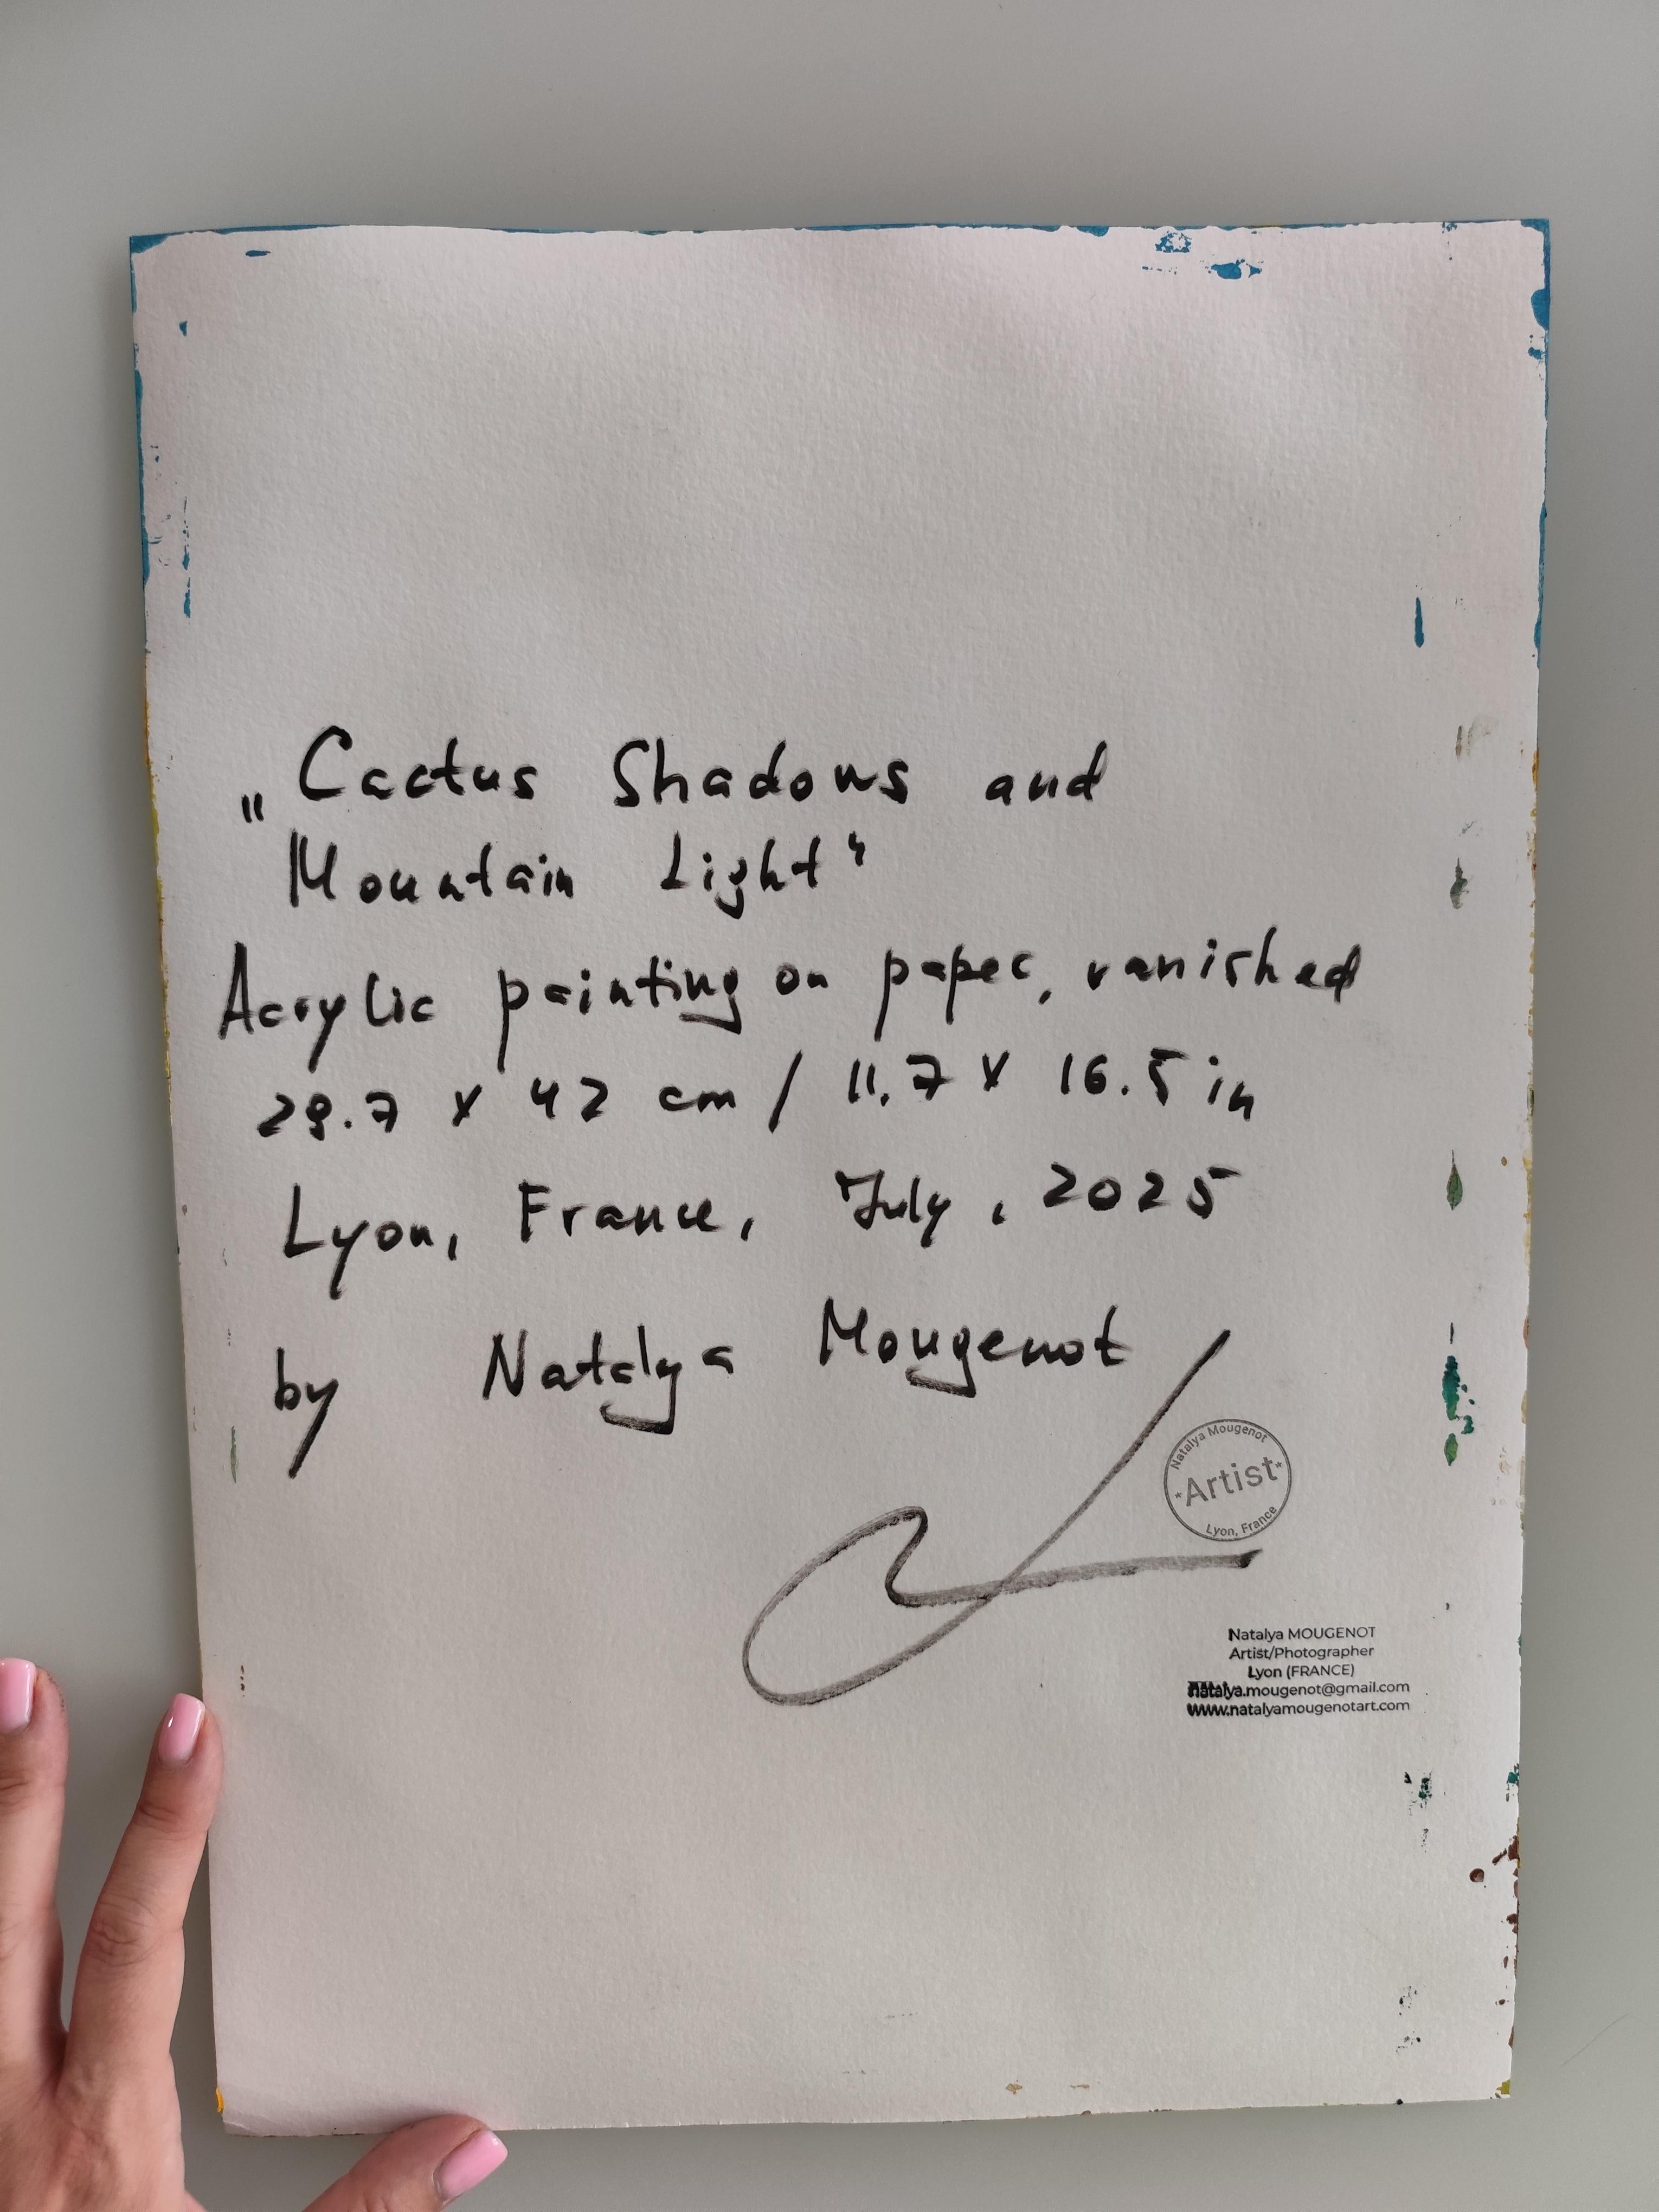 „Cactus Shadows and
Mountain Light“
Acrylic painting on paper, vanished
29.7 x 42 cm / 11.7 x 16.5 in
Lyon, France, July, 2025
by Natalya Mougenot
Natalya Mougenot
*Artist*
Lyon, France
Natalya MOUGENOT
Artist/Photographer
Lyon (FRANCE)
natalya.mougenot@gmail.com
www.natalyamougenotart.com